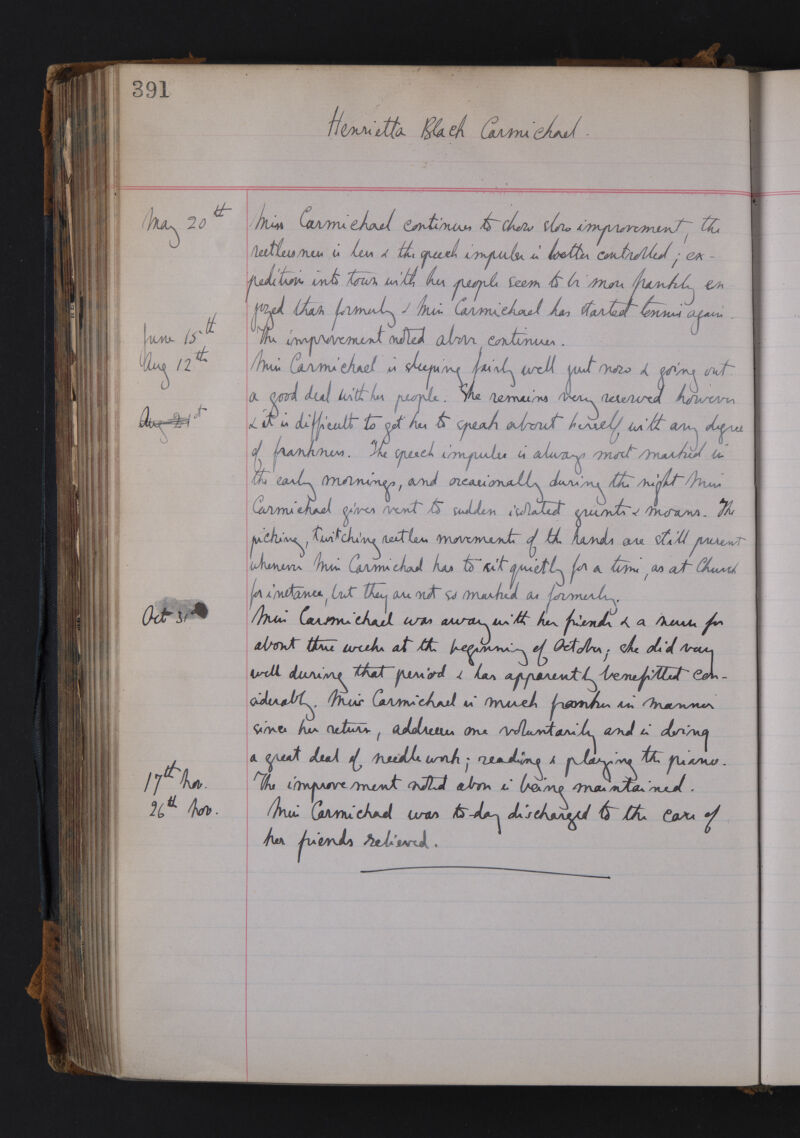 391
Henrietta Black Carmichael.
May 20th Miss Carmichael continues to show slow improvement, the
restlessness is less & the speech impulse is better controlled; ex-
pedition into town with her people seem to be more frankly en
joyed than formerly & Miss Carmichael has started tennis again.
June 15th The improvement noted above continues.
Aug 12th Miss Carmichael is sleeping fairly well just now & going out
a good deal with her people. She remains very reserved however
Aug 21st & it is difficult to get her to speak about herself with any degree
of frankness. The speech impulse is always most marked in
the early mornings, and occasionally during the night Miss
Carmichael gives vent to sudden isolated grunts & moans. The
picking, twitching restless movements of the hands are still present
whenever Miss Carmichael has to sit quietly for a time, as at Church
for instance, but they are not so marked as formerly.
Oct 31 Miss Carmichael was away with her friends & a nurse for
about three weeks at the beginning of October; she did very
well during that period & has apparently benefitted con-
siderably. Miss Carmichael is much franker in manner
since her return, addresses one voluntarily and is doing
a great deal of needlework; reading & playing the piano.
17th Nov. The improvement noted above is being maintained.
26th Nov. Miss Carmichael was to-day discharged to the care of
her friends relieved.